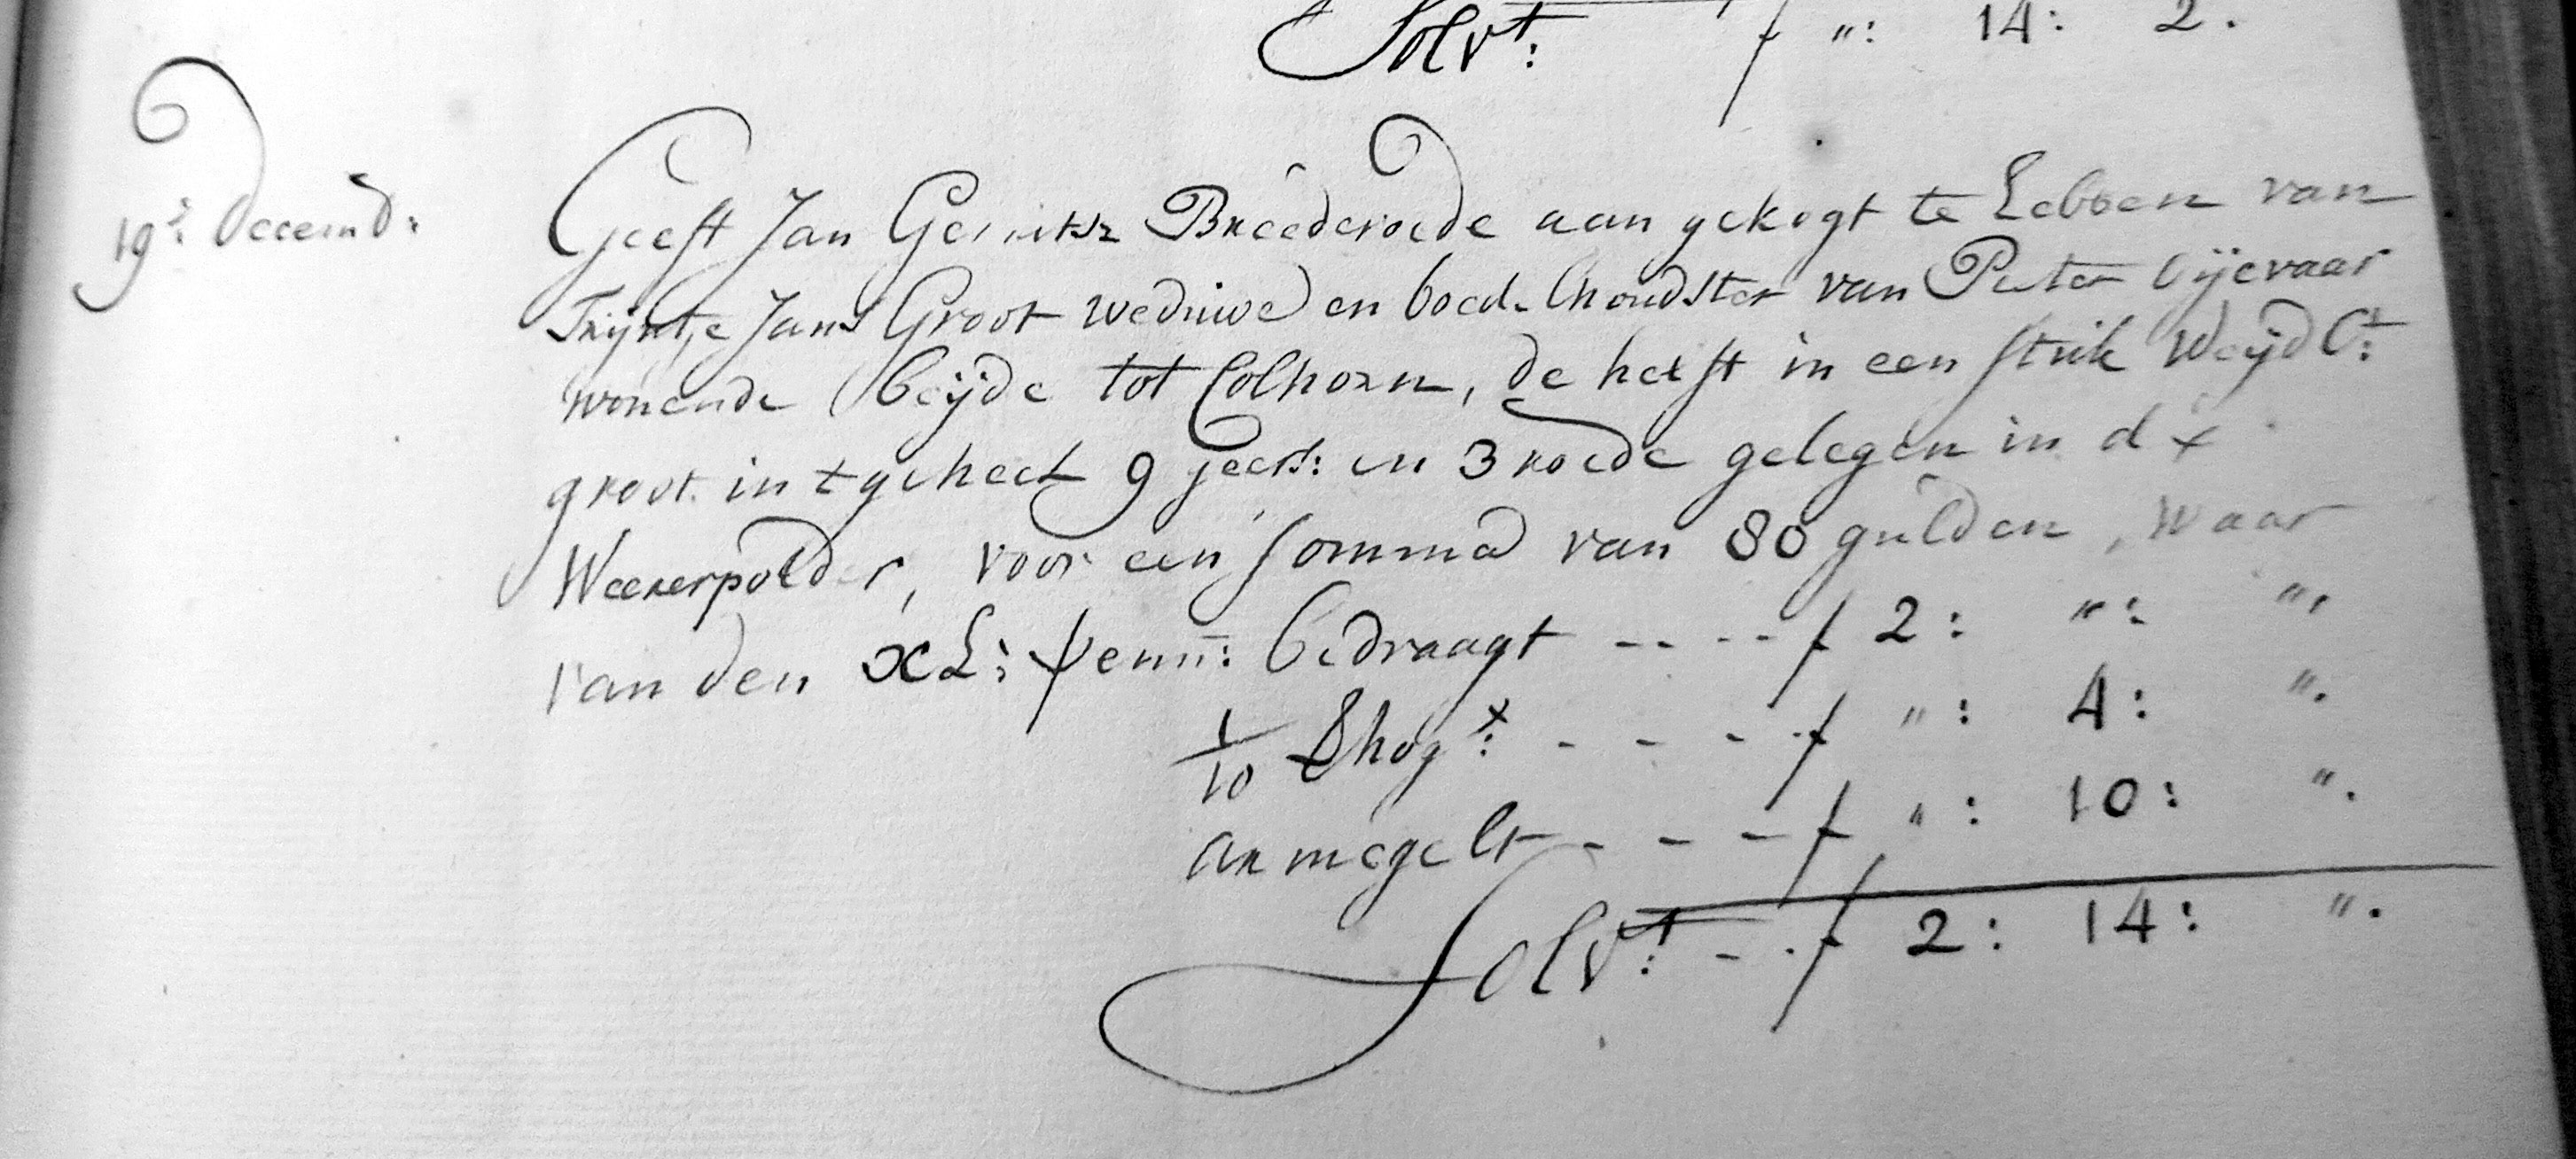 Solvt: f ": 14: 2.
19e: Decemb:
Geeft Jan Gerritsz Breederoede aan gekogt te hebben van
Trijntje Jans Groot weduwe en boedelhoudster van Pieter Bijevaar
wonende beijde tot Colhorn, de helft in een stuk Weijdlt:
groot in t geheel 9 geers: en 3 roede gelegen in d
Weererpolder, voor een somma van 80 gulden, waar
van den XL: penn: bedraagt ---- f 2: ": ".
1/10 Vhog: - - - - f ": 4: ".
armegelt - - - f ": 10: ".
Solvt: - - f 2: 14: ".